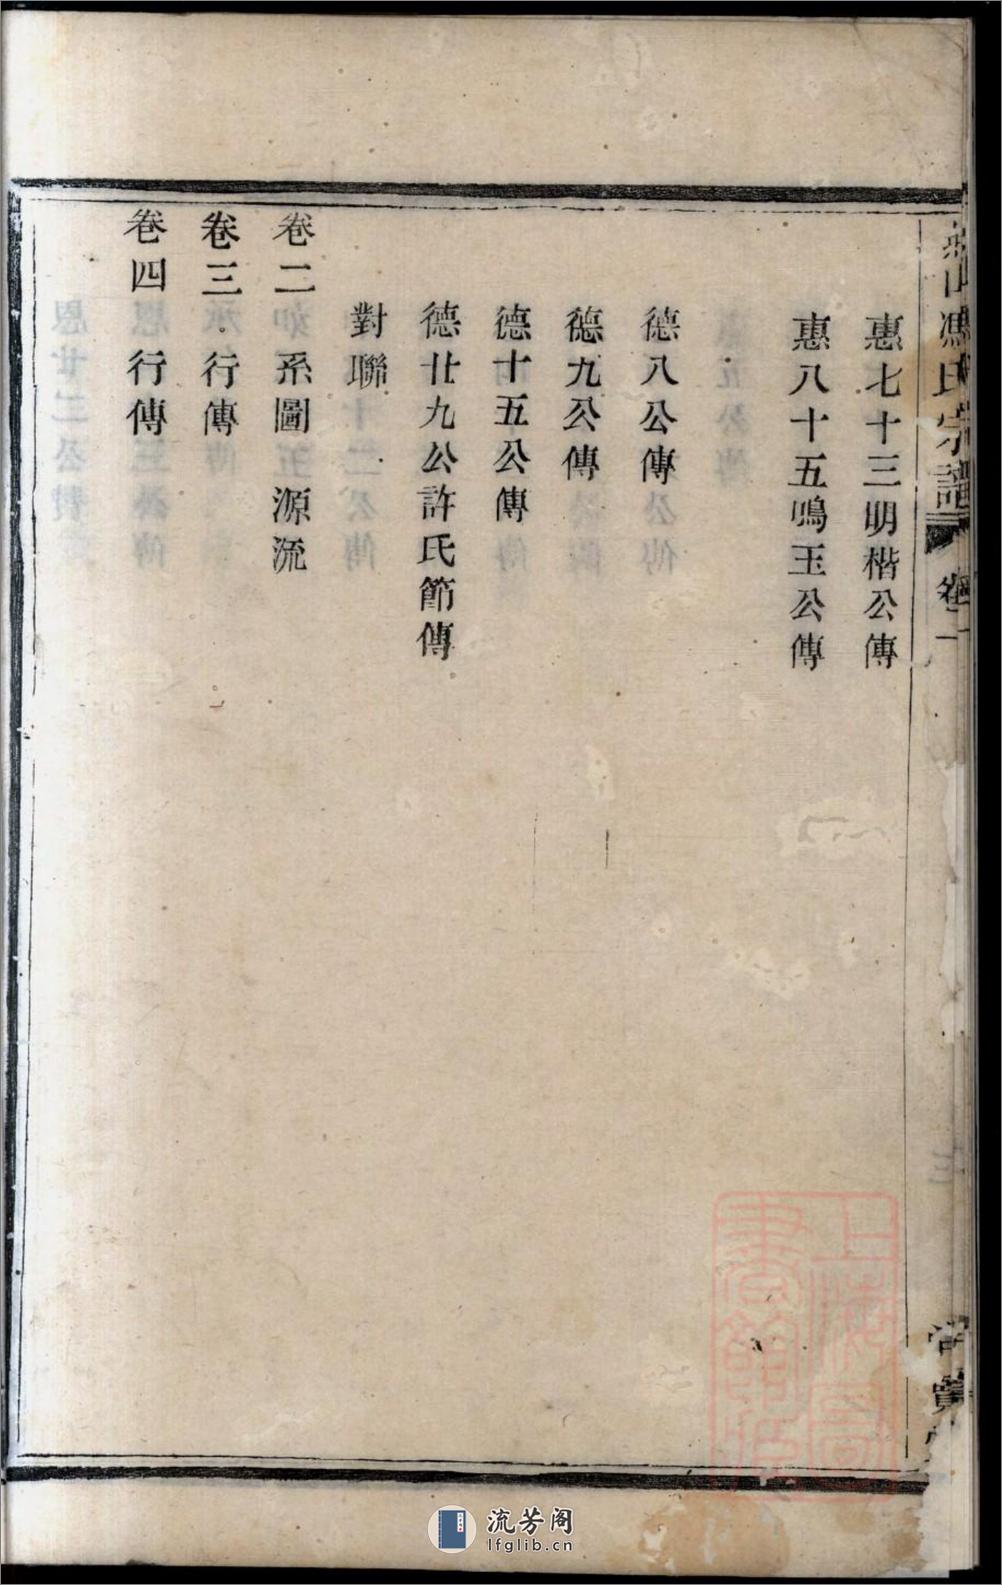 山馮氏宗譜 卷一
惠七十三明楷公傳
惠八十五鳴玉公傳
德八公傳
德九公傳
德十五公傳
德廿九公許氏節傳
對聯
卷二 系圖 源流
卷三 行傳
卷四 行傳
上海圖書館藏
流芳阁
lfglib.cn